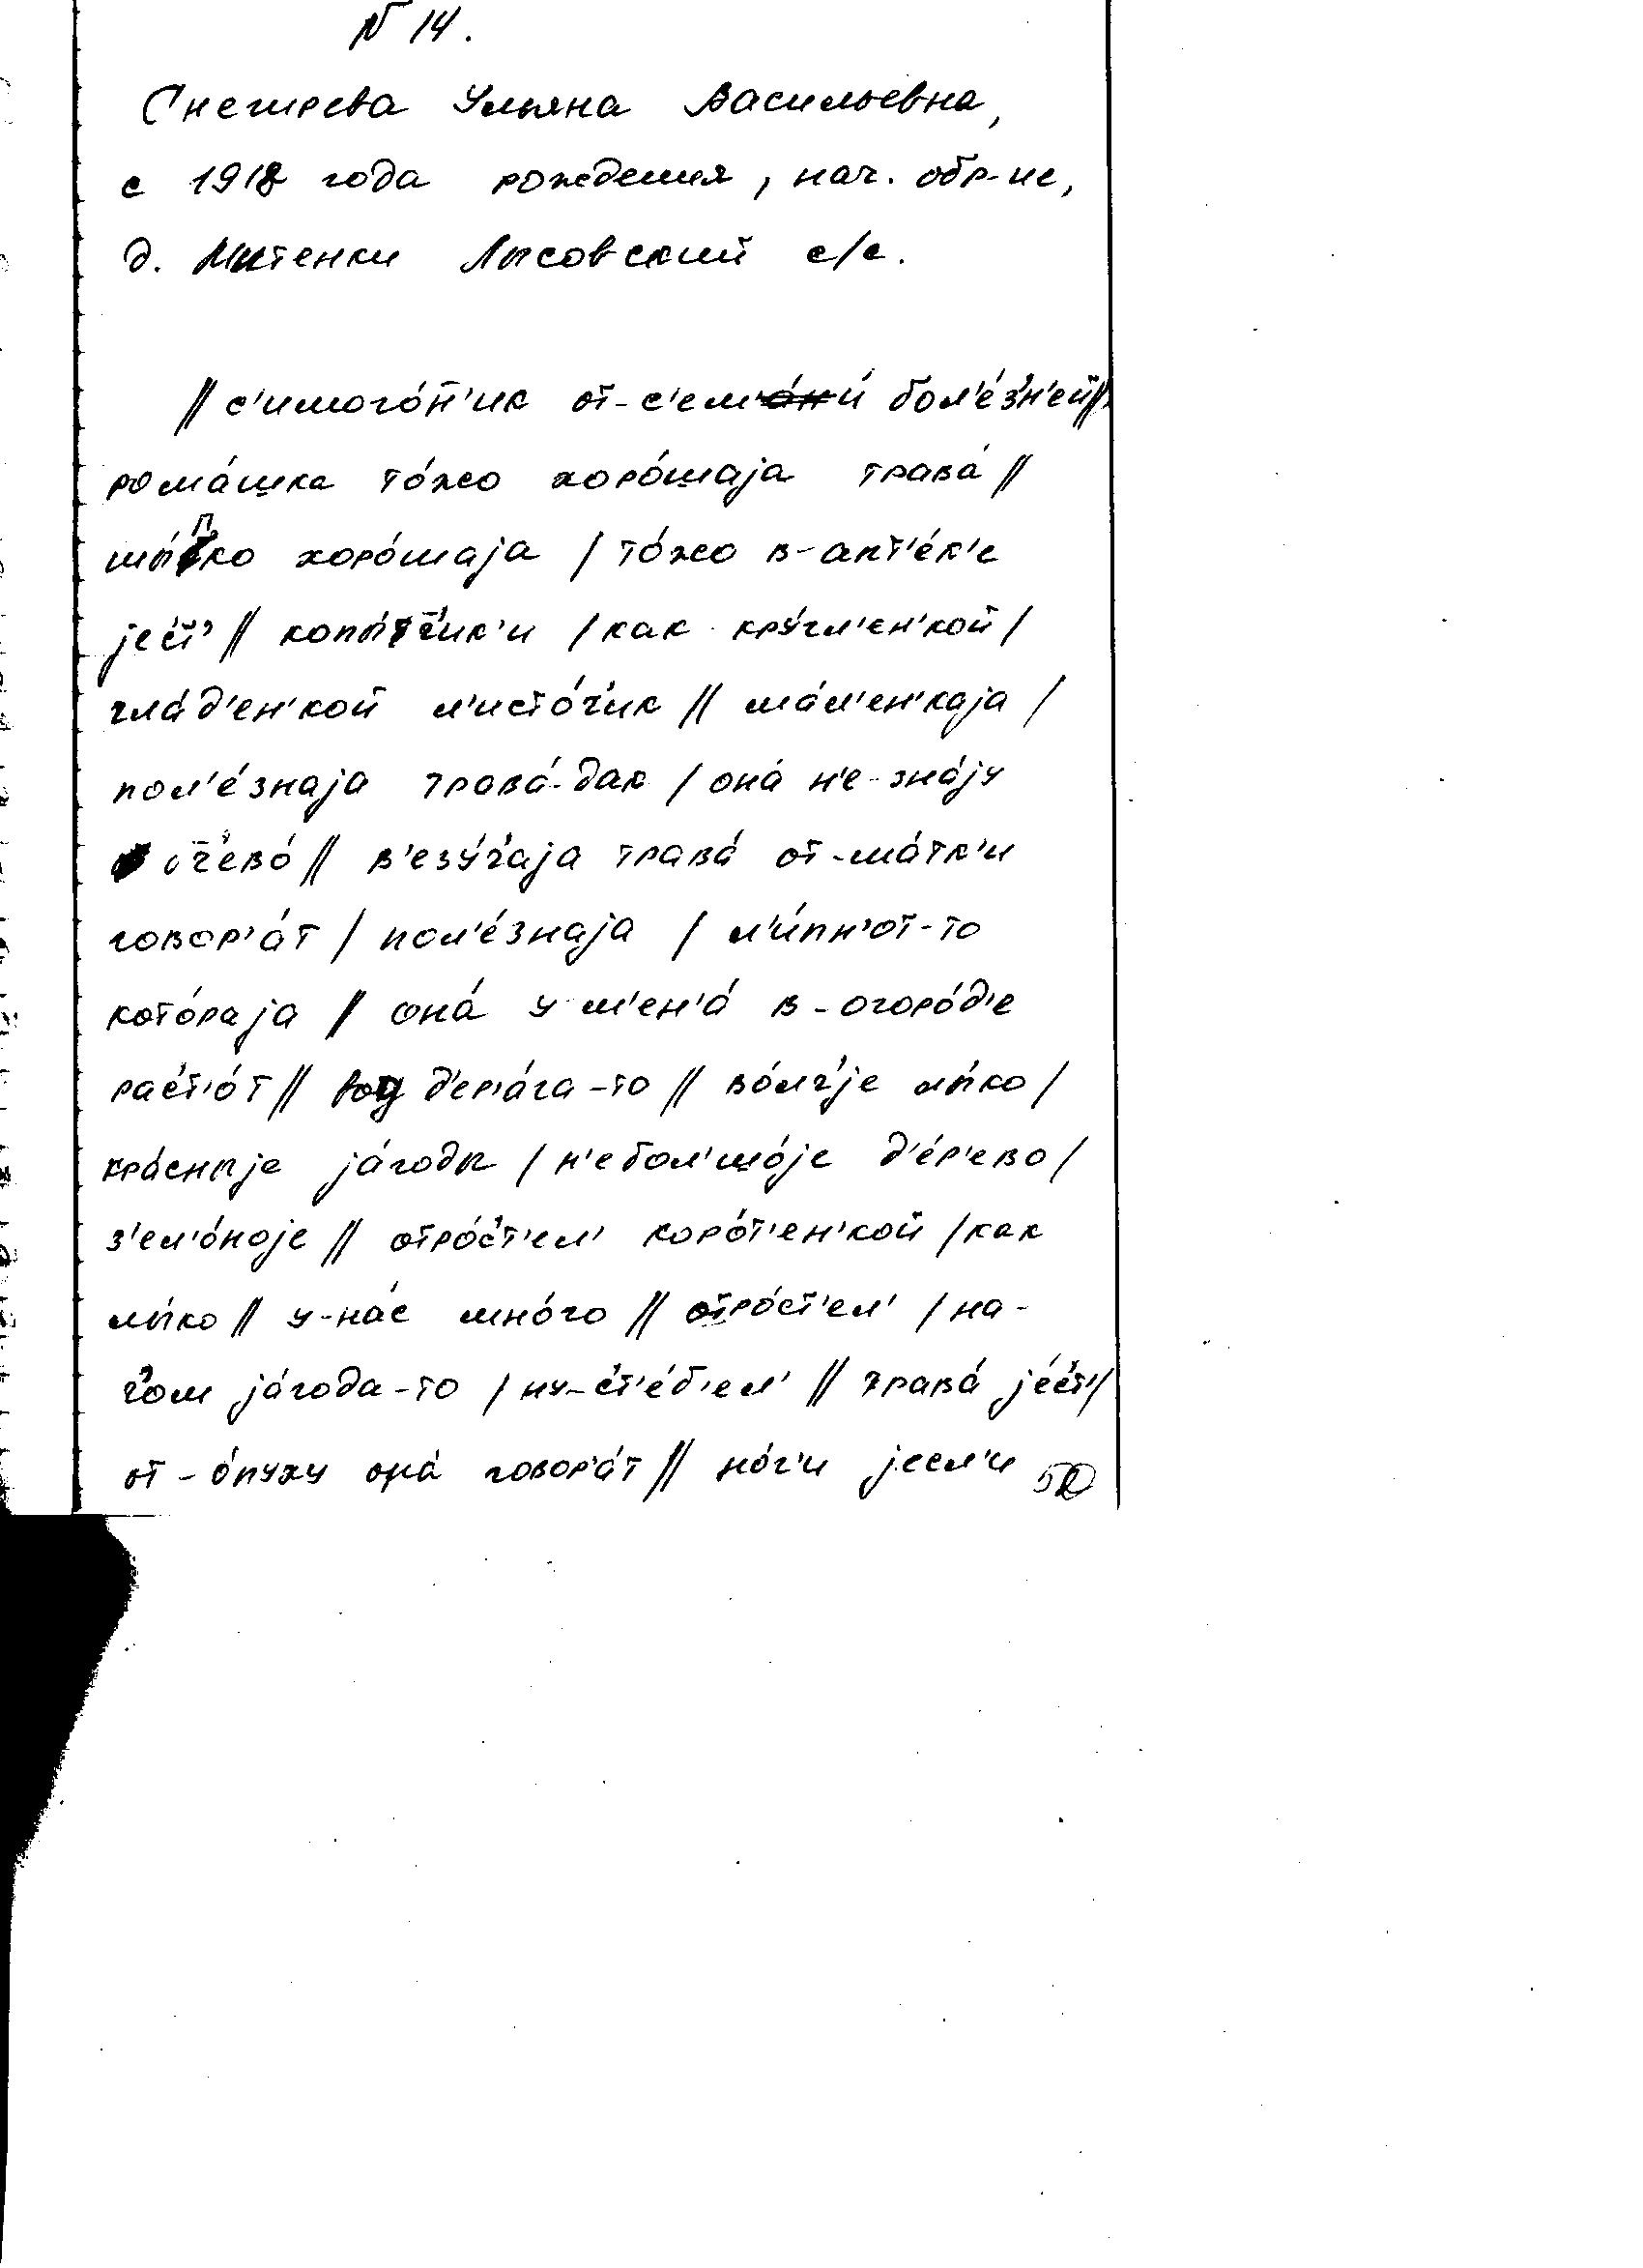 N 14.
Снегирева Ульяна Васильевна,
с 1918 года рождения, нач. обр-ие,
д. Митенки Лысовский с/с.
// с'имого́н'ик от-с'ем'и́ бол'е́з'н'ей//
рома́шка то́жо хоро́шаjа трава́ //
шы́пко хоро́шаjа / то́жо в-апт'е́к'е
jе́с'т' // копы́т'ч'ик'и / как кру́гл'ен'кой /
гла́д'ен'кой л'исто́ч'ик // ма́л'ен'каjа /
пол'е́знаjа трава́-дак / она́ н'е-зна́jу
от'ч'ево́ // в'езу́ч'аjа трава́ от-ма́тк'и
говор'а́т / пол'е́знаjа / л'и́пн'от-то
кото́раjа / она́ у м'ен'а́ в-огоро́д'е
рас'т'о́т // д'ер'а́га-то // во́лч'jе лы́ко /
кра́сныjе jа́годы / н'ебол'шо́jе д'е́р'ево /
з'ел'о́ноjе // отро́с'т'ел' коро́т'ен'кой / как
лы́ко // у-на́с мно́го // отро́ст'ел' / на-
ч'ом jа́года-то / ну-с'т'е́б'ел' // трава́ jе́с'т'/
от-о́пуху она́ говор'а́т // но́г'и jесл'и